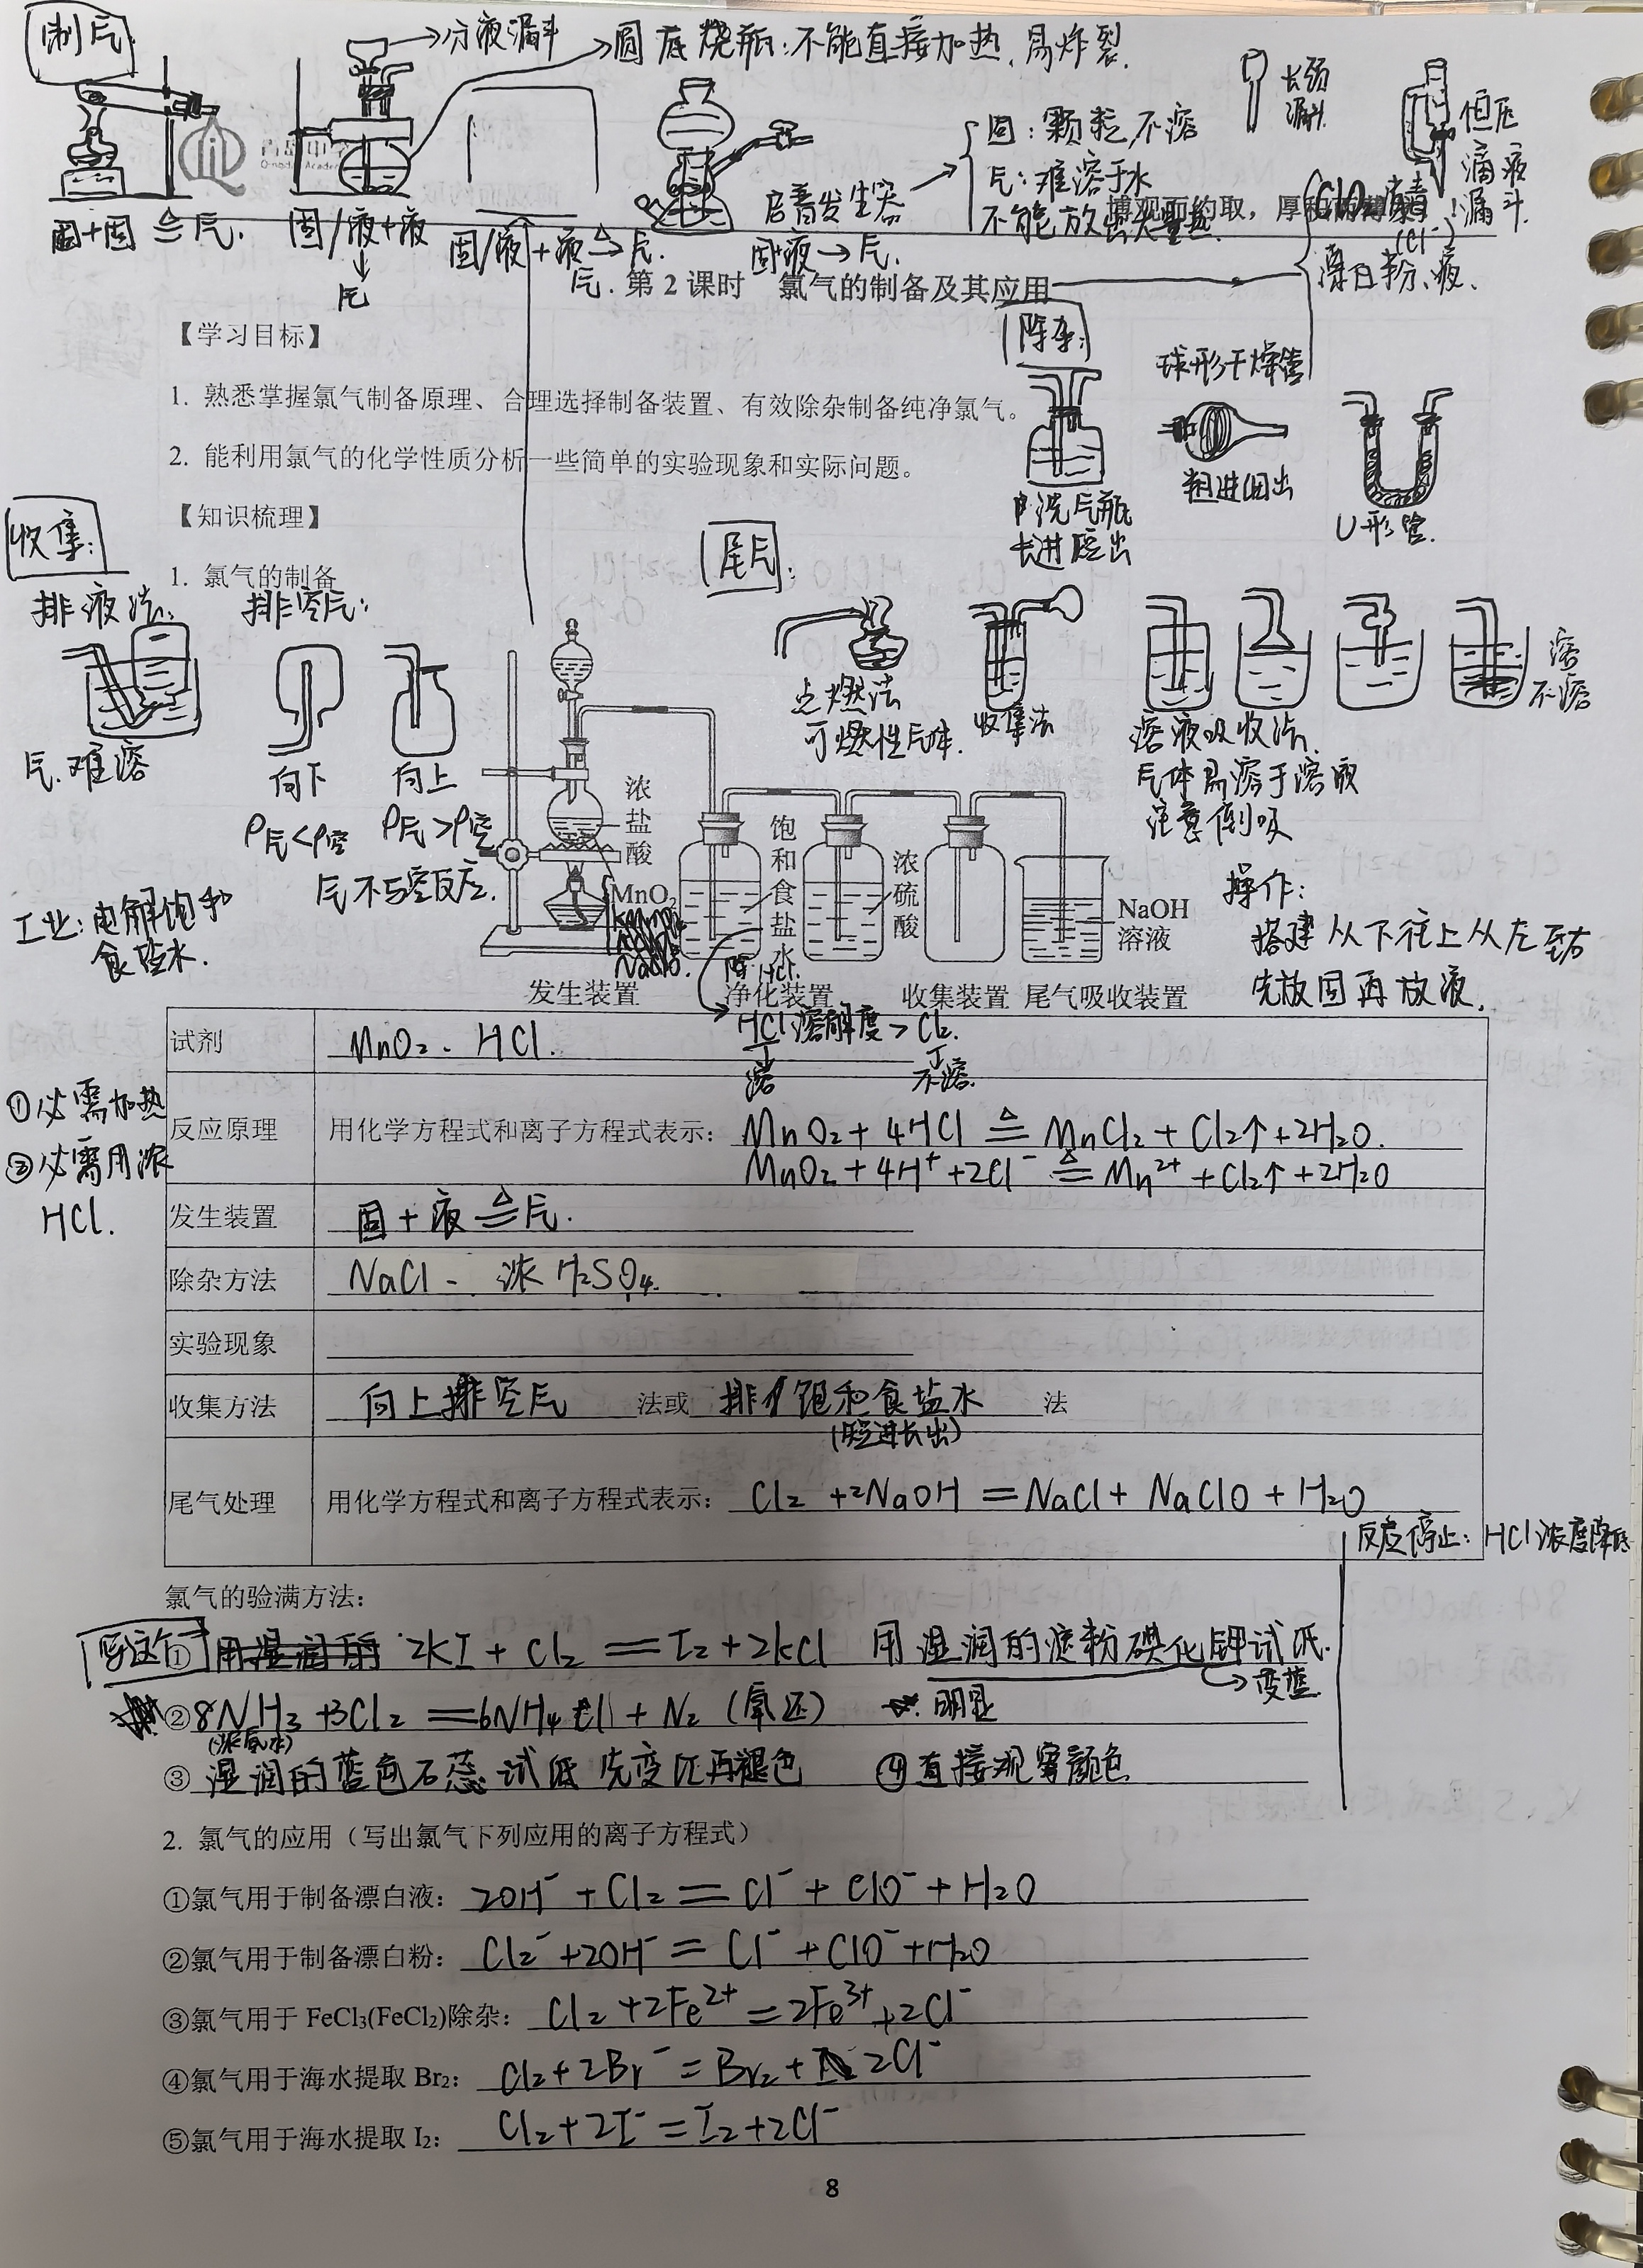 制气
分液漏斗
圆底烧瓶:不能直接加热,易炸裂.
长颈
漏斗
恒压
滴液
漏斗
固:颗粒不溶
气:难溶于水
启普发生器
博观而约取,厚积
固+固 ≜ 气.
固/液+液
↓
气
固/液+液→气.
固+液→气.
气.
(Cl⁻)
漂白粉、液.
第 2 课时 氯气的制备及其应用
【学习目标】
除杂:
球形干燥管
1. 熟悉掌握氯气制备原理、合理选择制备装置、有效除杂制备纯净氯气。
2. 能利用氯气的化学性质分析一些简单的实验现象和实际问题。
粗进细出
洗气瓶
长进短出
U形管.
【知识梳理】
收集:
尾气:
1. 氯气的制备
排液法:
排空气:
点燃法
可燃性气体.
收集法
溶液吸收法.
气体易溶于溶液
注意倒吸
溶
不溶
气.难溶
向下
向上
ρ气<ρ空
ρ气>ρ空
气不与空反应.
工业:电解饱和
食盐水.
浓盐酸
MnO₂
饱和食盐水
浓硫酸
NaOH
溶液
操作:
搭建 从下往上从左至右
先放固再放液.
除HCl.
发生装置 净化装置 收集装置 尾气吸收装置
HCl溶解度>Cl₂.
溶 不溶.
试剂 MnO₂、HCl.
①必需加热
②必需用浓
HCl.
反应原理 用化学方程式和离子方程式表示: MnO₂+4HCl ≜ MnCl₂+Cl₂↑+2H₂O.
MnO₂+4H⁺+2Cl⁻ ≜ Mn²⁺+Cl₂↑+2H₂O
发生装置 固+液≜气.
除杂方法 NaCl、浓H₂SO₄.
实验现象
收集方法 向上排空气 法或 排饱和食盐水 法
(短进长出)
尾气处理 用化学方程式和离子方程式表示: Cl₂+2NaOH=NaCl+NaClO+H₂O
反应停止:HCl浓度降低
氯气的验满方法:
写这个 ① 2KI+Cl₂=I₂+2KCl 用湿润的淀粉碘化钾试纸.
→变蓝
②8NH₃+3Cl₂=6NH₄Cl+N₂(氧还) 明显
(浓氨水)
③湿润的蓝色石蕊试纸先变红再褪色 ④直接观察颜色
2. 氯气的应用(写出氯气下列应用的离子方程式)
①氯气用于制备漂白液: 2OH⁻+Cl₂=Cl⁻+ClO⁻+H₂O
②氯气用于制备漂白粉: Cl₂⁻+2OH⁻=Cl⁻+ClO⁻+H₂O
③氯气用于 FeCl₃(FeCl₂)除杂: Cl₂+2Fe²⁺=2Fe³⁺+2Cl⁻
④氯气用于海水提取 Br₂: Cl₂+2Br⁻=Br₂+2Cl⁻
⑤氯气用于海水提取 I₂: Cl₂+2I⁻=I₂+2Cl⁻
8